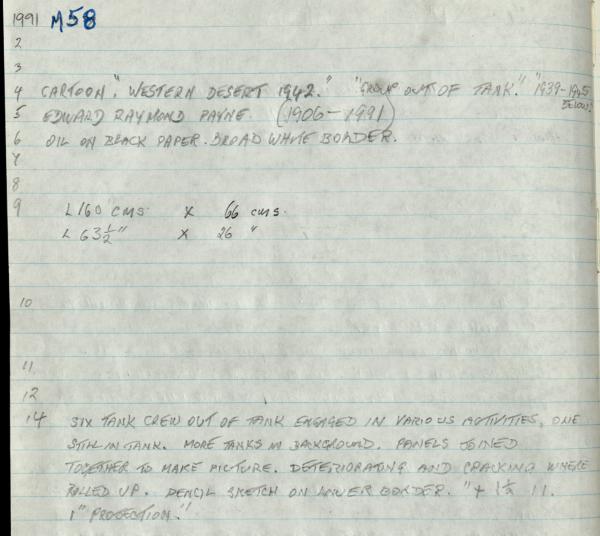 1991 M58
2
3
4 CARTOON "WESTERN DESERT 1942." "GROUP OUT OF TANK." "1939-1945
5 EDWARD RAYMOND PAYNE. (1906-1991) BELOW."
6 OIL ON BLACK PAPER. BROAD WHITE BORDER.
7
8
9 L 160 CMS. X 66 CMS.
L 63 1/2" X 26 "
10
11
12
14 SIX TANK CREW OUT OF TANK ENGAGED IN VARIOUS ACTIVITIES, ONE
STILL IN TANK. MORE TANKS IN BACKGROUND. PANELS JOINED
TOGETHER TO MAKE PICTURE. DETERIORATING AND CRACKING WHERE
ROLLED UP. PENCIL SKETCH ON LOWER BORDER. "+
1" PROJECTION."